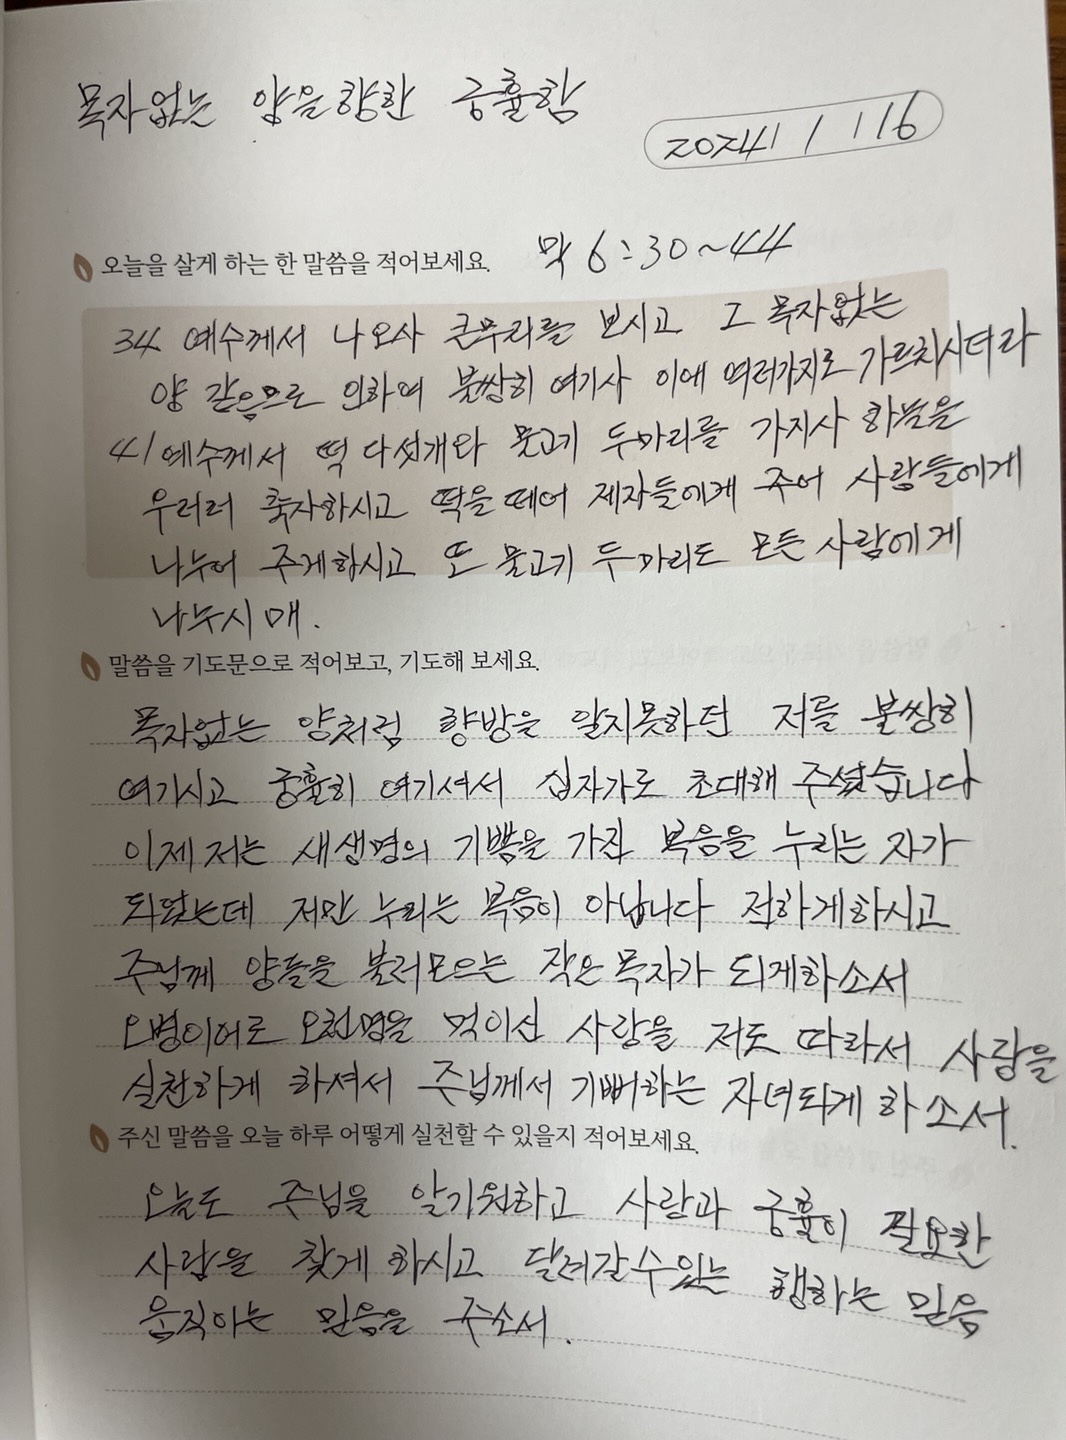 목자없는 양을향한 긍휼함
2024 / 1 16
오늘을 살게 하는 한 말씀을 적어보세요. 막 6:30~44
34 예수께서 나오사 큰무리를 보시고 그 목자없는
양 같음으로 인하여 불쌍히 여기사 이에 여러가지로 가르치시더라
41 예수께서 떡 다섯개와 물고기 두마리를 가지사 하늘을
우러러 축자하시고 떡을 떼어 제자들에게 주어 사람들에게
나누어 주게하시고 또 물고기 두마리도 모든 사람에게
나누시매.
말씀을 기도문으로 적어보고, 기도해 보세요.
목자없는 양처럼 향방을 알지못하던 저를 불쌍히
여기시고 긍휼히 여기셔서 십자가로 초대해 주셨습니다
이제 저는 새생명의 기쁨을 가진 복음을 누리는 자가
되었는데 저만 누리는 복음이 아닙니다 전하게하시고
주님께 양들을 불러모으는 작은 목자가 되게하소서
오병이어로 오천명을 먹이신 사랑을 저도 따라서 사랑을
실천하게 하셔서 주님께서 기뻐하는 자녀되게 하소서.
주신 말씀을 오늘 하루 어떻게 실천할 수 있을지 적어보세요.
오늘도 주님을 알기원하고 사랑과 긍휼이 필요한
사람을 찾게 하시고 달려갈수있는 행하는 믿음
움직이는 믿음을 주소서.